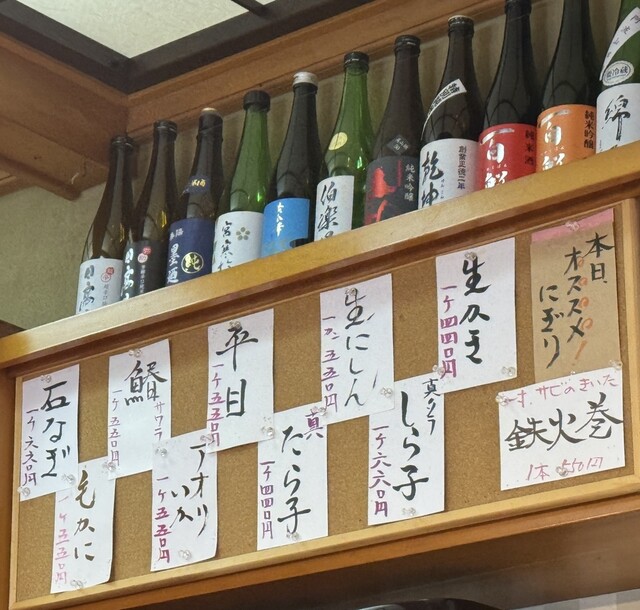 本日
オススメ!
にぎり
生かき
一ケ四四〇円
生にしん
一ケ五五〇円
平目
一ケ五五〇円
鰆
サワラ
一ケ五五〇円
石なぎ
一ケ六六〇円
サビのきいた
鉄火巻
1本 550円
真ダラ
しら子
一ケ六六〇円
真
たら子
一ケ四四〇円
アオリ
いか
一ケ五五〇円
毛がに
一ケ五五〇円
純
伯楽
純米吟醸
特別純米
乾坤
創業正徳二年
純米酒
純米吟醸
要冷蔵
綿